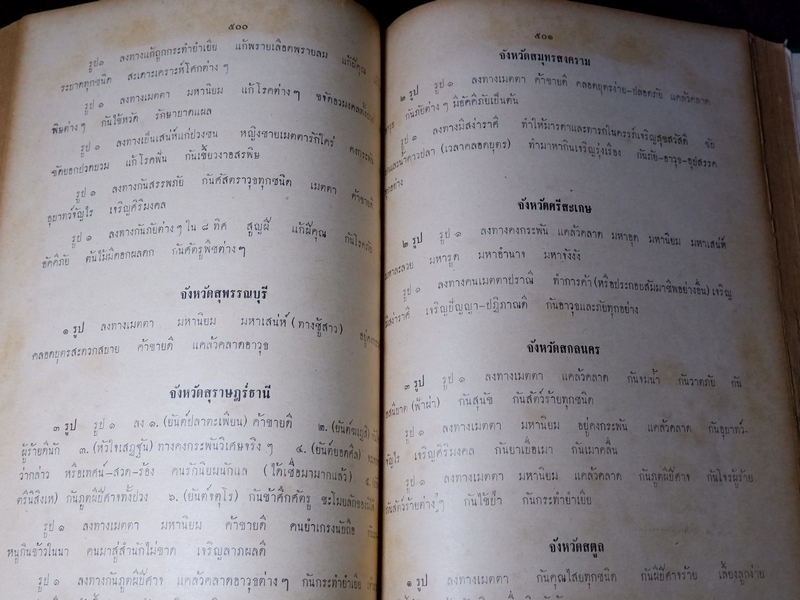 ๕๐๐
รูป ๑ ลงทางแก้ถูกกระทำยำเยีย แก้พรายเลือดพรายลม แก้ผีคุณ
ระยาดทุกชนิด สะเดาะเคราะห์โศกต่าง ๆ
รูป ๑ ลงทางเมตตา มหานิยม แก้โรคต่าง ๆ
พิษต่าง ๆ กันไข้หวัด รักษายาดแผล
รูป ๑ ลงทางเย็นเสน่ห์แก่ปวงชน หญิงชายเมตตารักใคร่ คงกระพัน
ขัดยอกปวดยวม แก้โรคพื้น กันเขี้ยวงาอสรพิษ
รูป ๑ ลงทางกันสรรพภัย กันศัสตราวุธทุกชนิด เมตตา ค้าขายดี
อุบาทว์จัญไร เจริญศิริมงคล
รูป ๑ ลงทางกันภัยต่าง ๆ ใน ๘ ทิศ สูญฝี แก้ผีคุณ กันโรคภัย
อัคคีภัย ต้นไม้มีดอกผลดก กันศัตรูพืชต่าง ๆ
จังหวัดสุพรรณบุรี
๑ รูป ลงทางเมตตา มหานิยม มหาเสน่ห์ (ทางชู้สาว)
คลอดบุตรสะดวกสบาย ค้าขายดี แคล้วคลาดอาวุธ
จังหวัดสุราษฎร์ธานี
๓ รูป รูป ๑ ลง ๑. (ยันต์ปลาตะเพียน) ค้าขายดี ๒.
ผู้ร้ายดีนัก ๓. (หัวใจเสฏฐัน) ทางคงกระพันวิเศษจริง ๆ ๔. (ยันต์ยอดศีล)
ว่ากล่าว หรือเทศน์-สวด-ร้อง คนรักนิยมนักแล (ได้เชื่อมามากแล้ว) ๕.
ตรีนิสิงเห) กันภูตผีปีศาจทั้งปวง ๖. (ยันต์จตุโร) กันข้าศึกศัตรู
รูป ๑ ลงทางเมตตา มหานิยม ค้าขายดี คนยำเกรงนับถือ
หนูกินข้าวในนา คนมาสู่สำนักไม่ขาด เจริญลาภผลดี
รูป ๑ ลงทางกันภูตผีปีศาจ แคล้วคลาดอาวุธต่าง ๆ กันกระทำยำเยีย
๕๐๑
จังหวัดสมุทรสงคราม
๒ รูป รูป ๑ ลงทางเมตตา ค้าขายดี คลอดบุตรง่าย-ปลอดภัย แคล้วคลาด
กันภัยต่าง ๆ มีอัคคีภัยเป็นต้น
รูป ๑ ลงทางมีสง่าราศี ทำให้มารดาและทารกในครรภ์เจริญสุขสวัสดี
และน้ำคาวปลา (เวลาคลอดบุตร) ทำมาหากินเจริญรุ่งเรือง กันภัย-อาวุธ-อุปสรรค
จังหวัดศรีสะเกษ
๒ รูป รูป ๑ ลงทางคงกระพัน แคล้วคลาด มหาอุด มหานิยม มหาเสน่ห์
มหาละลวย มหารูด มหาอำนาจ มหาจังงัง
รูป ๑ ลงทางคนเมตตาปราณี ทำการค้า (หรือประกอบสัมมาชีพอย่างอื่น) เจริญ
มีสง่าราศี เจริญปัญญา-ปฏิภาณดี กันอาวุธและภัยทุกอย่าง
จังหวัดสกลนคร
๓ รูป รูป ๑ ลงทางเมตตา แคล้วคลาด กันจมน้ำ กันวาตภัย กัน
อสนีบาต (ฟ้าผ่า) กันสุนัข กันสัตว์ร้ายทุกชนิด
รูป ๑ ลงทางเมตตา มหานิยม อยู่คงกระพัน แคล้วคลาด กันอุบาทว์-
จัญไร เจริญศิริมงคล กันยาเบื่อเมา กันเมาคลื่น
รูป ๑ ลงทางเมตตา มหานิยม แคล้วคลาด กันภูตผีปีศาจ กันโจรผู้ร้าย
กันสัตว์ร้ายต่าง ๆ กันใช้ย้ำ กันกระทำยำเยีย
จังหวัดสตูล
๑ รูป ลงทางเมตตา กันคุณไสยทุกชนิด กันผีปีศาจร้าย เลี้ยงลูกง่าย